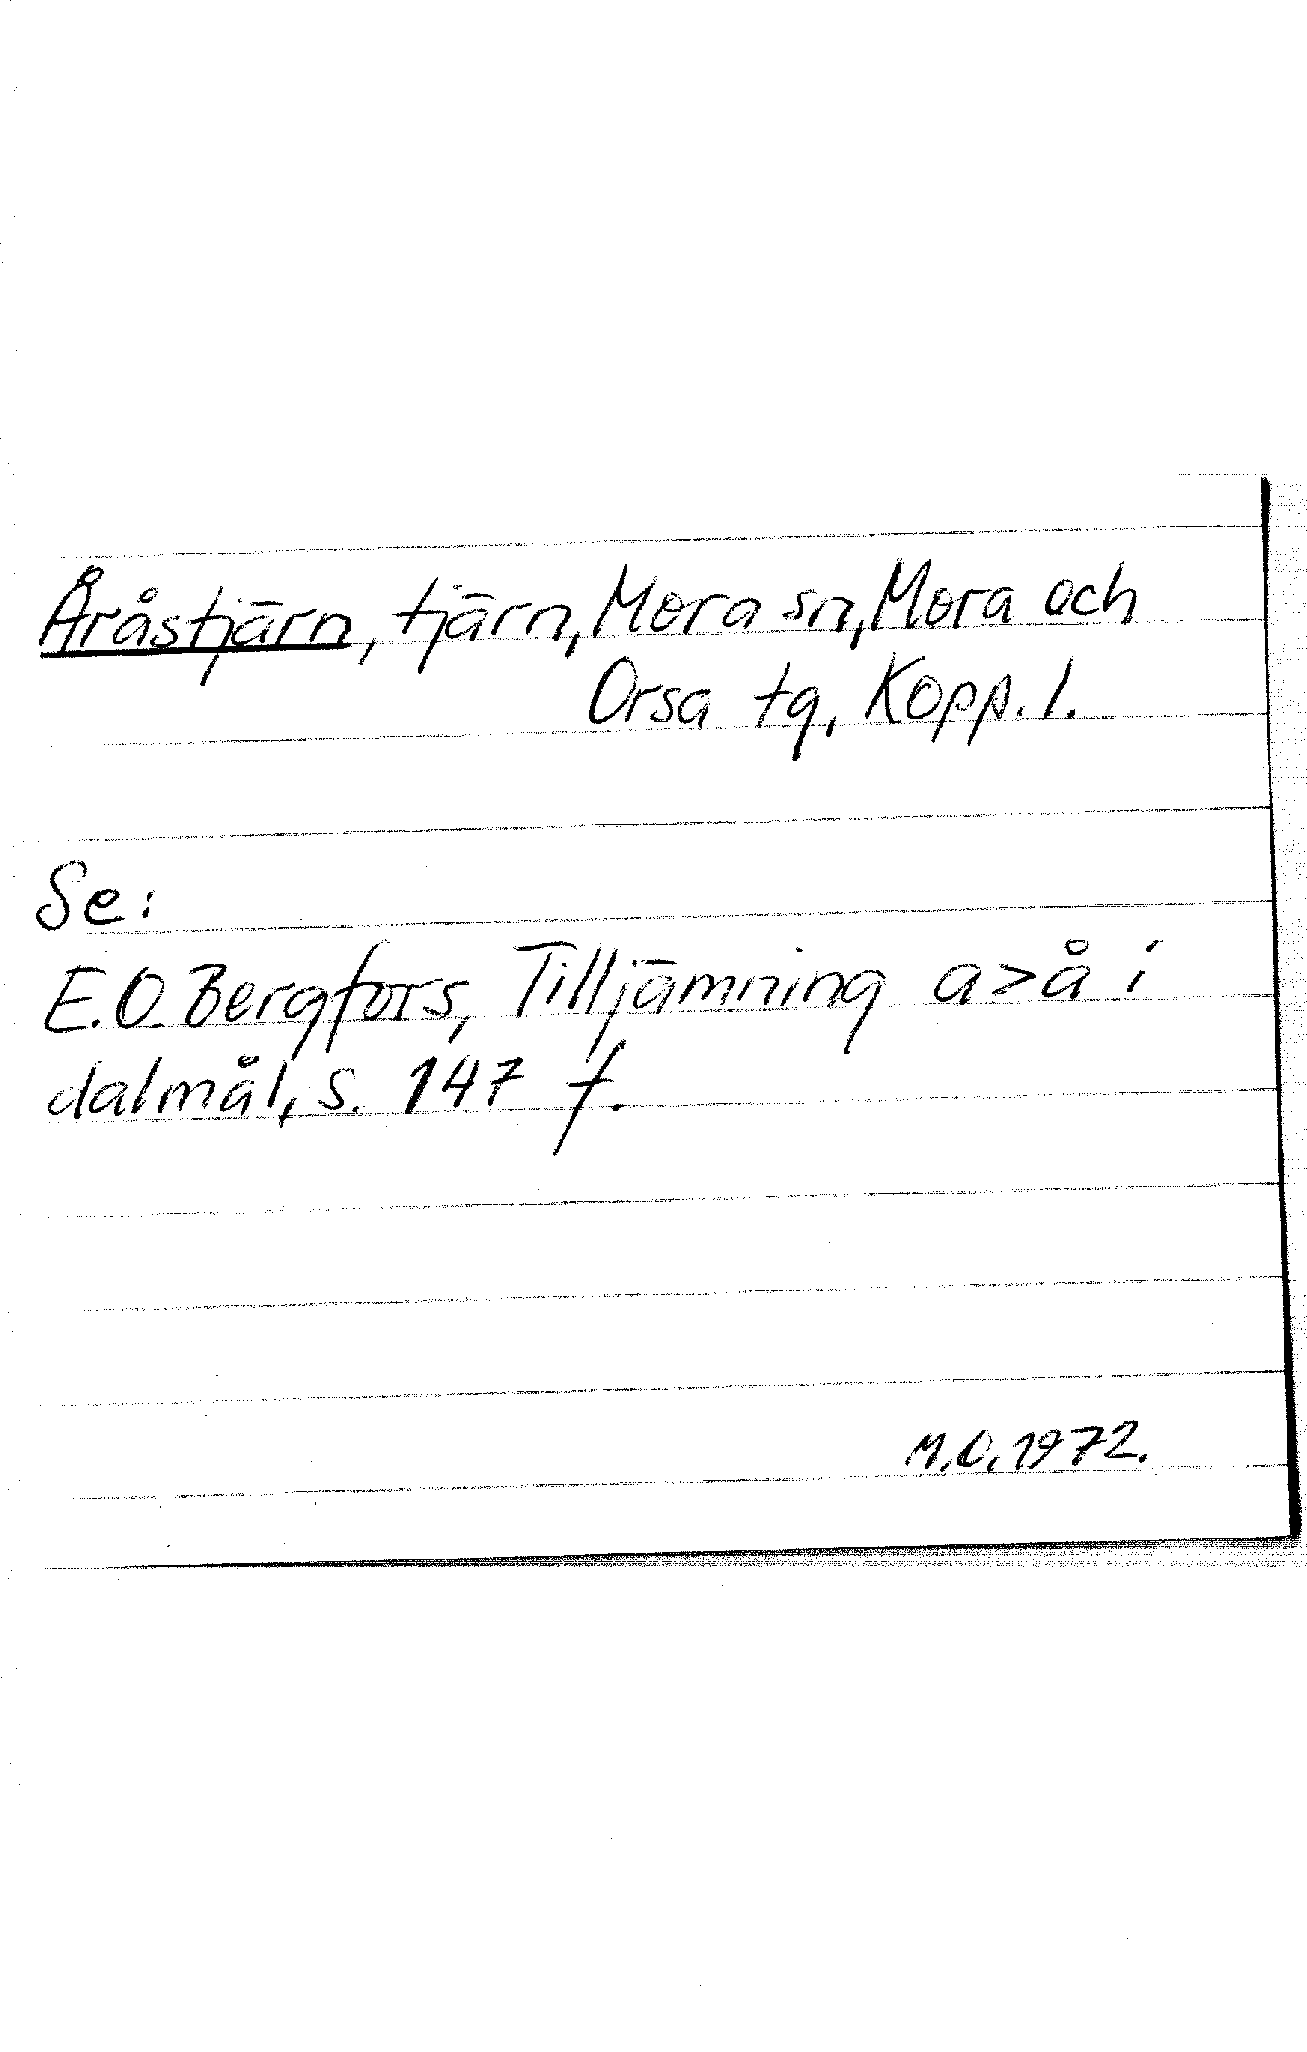 Åråstjärn, tjärn, Mora sn, Mora och
Orsa tg, Kopp. l.
Se:
E.O. Bergfors, Tilljämning a>å i
dalmål, s. 147 f.
M.O. 1972.